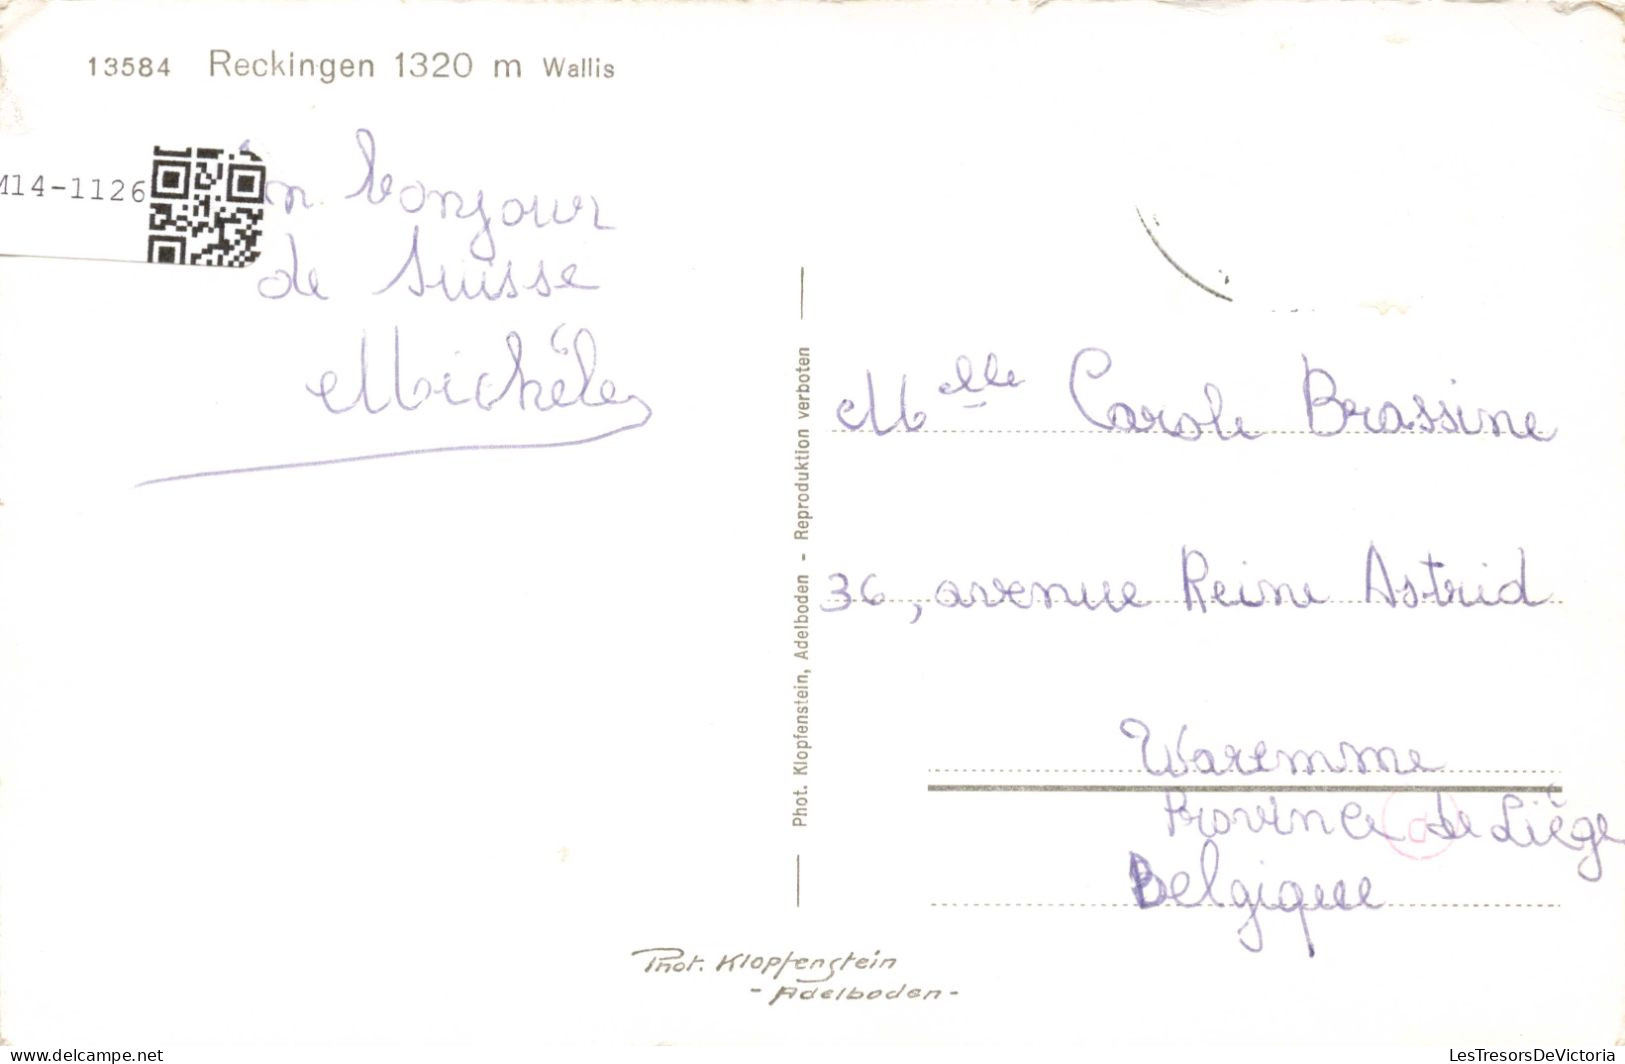 13584 Reckingen 1320 m Wallis
M14-1126
Un bonjour
de Suisse
Michèle
Phot. Klopfenstein, Adelboden - Reproduktion verboten
Mlle Carole Brassine
36, avenue Reine Astrid
Waremme
Province de Liège
Belgique
Phot. Klopfenstein
- Adelboden -
delcampe.net
LesTresorsDeVictoria